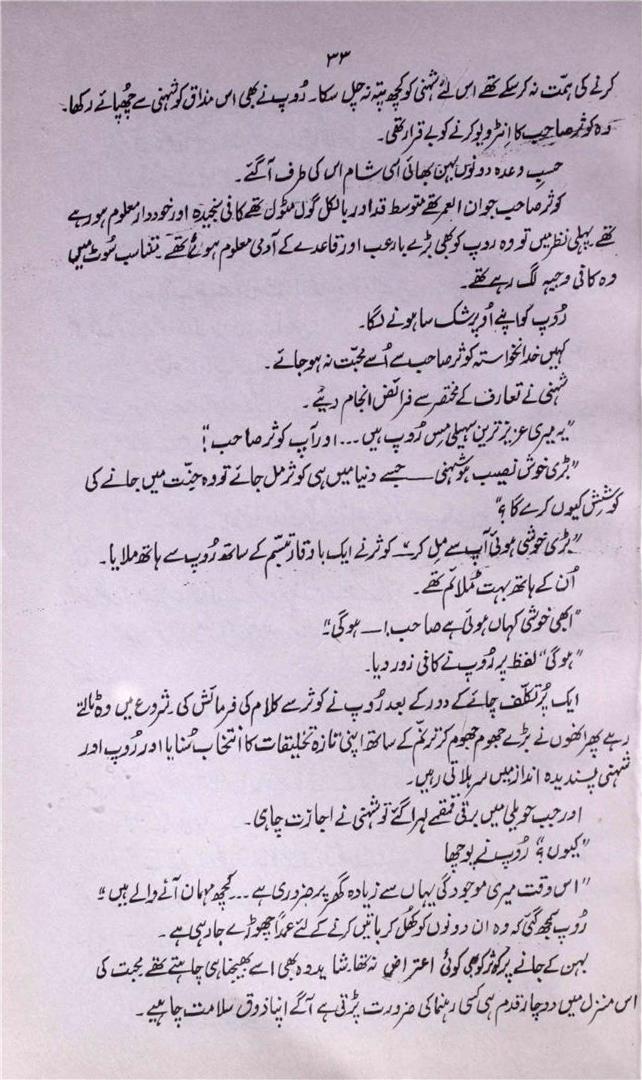 ۳۳
کرنے کی ہمّت نہ کرسکے تھے اس لئے شہنی کو کچھ پتہ نہ چل سکا۔ رُوپ نے بھی اس مذاق کو شہنی سے چھپائے رکھا۔
وہ کوثر صاحب کا انٹرویو کرنے کو بے قرار تھی۔
حسبِ وعدہ دونوں بہن بھائی اسی شام اس کی طرف آگئے۔
کوثر صاحب جوان العمر تھے متوسط قد اور بالکل گول مٹول تھے کافی سنجیدہ اور خود دار معلوم ہو رہے
تھے پہلی نظر میں تو وہ روپ کو بھی بڑے بارعب اور قاعدے کے آدمی معلوم ہوئے تھے۔ متناسب سُوٹ میں
وہ کافی وجیہہ لگ رہے تھے۔
رُوپ کو اپنے اُوپر شک سا ہونے لگا۔
کہیں خدانخواستہ کوثر صاحب سے اُسے محبّت نہ ہو جائے۔
شہنی نے تعارف کے مختصر سے فرائض انجام دیئے۔
"یہ میری عزیز ترین سہیلی مِس رُوپ ہیں ... اور آپ کوثر صاحب!"
"بڑی خوش نصیب ہو شہنی —— جسے دنیا میں ہی کوثر مل جائے تو وہ جنّت میں جانے کی
کوشش کیوں کرے گا؟"
"بڑی خوشی ہوئی آپ سے مِل کر۔" کوثر نے ایک باوقار تبسّم کے ساتھ رُوپ سے ہاتھ ملایا۔
اُن کے ہاتھ بہت مُلائم تھے۔
"ابھی خوشی کہاں ہوئی ہے صاحب! — ہوگی۔"
"ہوگی" لفظ پر رُوپ نے کافی زور دیا۔
ایک پُرتکلّف چائے کے دور کے بعد رُوپ نے کوثر سے کلام کی فرمائش کی۔ شروع میں وہ ٹالتے
رہے پھر انھوں نے بڑے جھوم جھوم کر ترنّم کے ساتھ اپنی تازہ تخلیقات کا انتخاب سُنایا اور رُوپ اور
شہنی پسندیدہ انداز میں سر ہلاتی رہیں۔
اور جب حویلی میں برقی قمقمے لہرا گئے تو شہنی نے اجازت چاہی۔
"کیوں؟" رُوپ نے پوچھا
"اس وقت میری موجودگی یہاں سے زیادہ گھر پر ضروری ہے ... کچھ مہمان آنے والے ہیں۔"
رُوپ سمجھ گئی کہ وہ ان دونوں کو کھُل کر باتیں کرنے کے لئے عمداً چھوڑے جا رہی ہے۔
بہن کے جانے پر کوثر کو بھی کوئی اعتراض نہ تھا شاید وہ بھی اسے بھیجنا ہی چاہتے تھے محبت کی
اس منزل میں دو چار قدم ہی کسی رہنما کی ضرورت پڑتی ہے آگے اپنا ذوق سلامت چاہیے۔